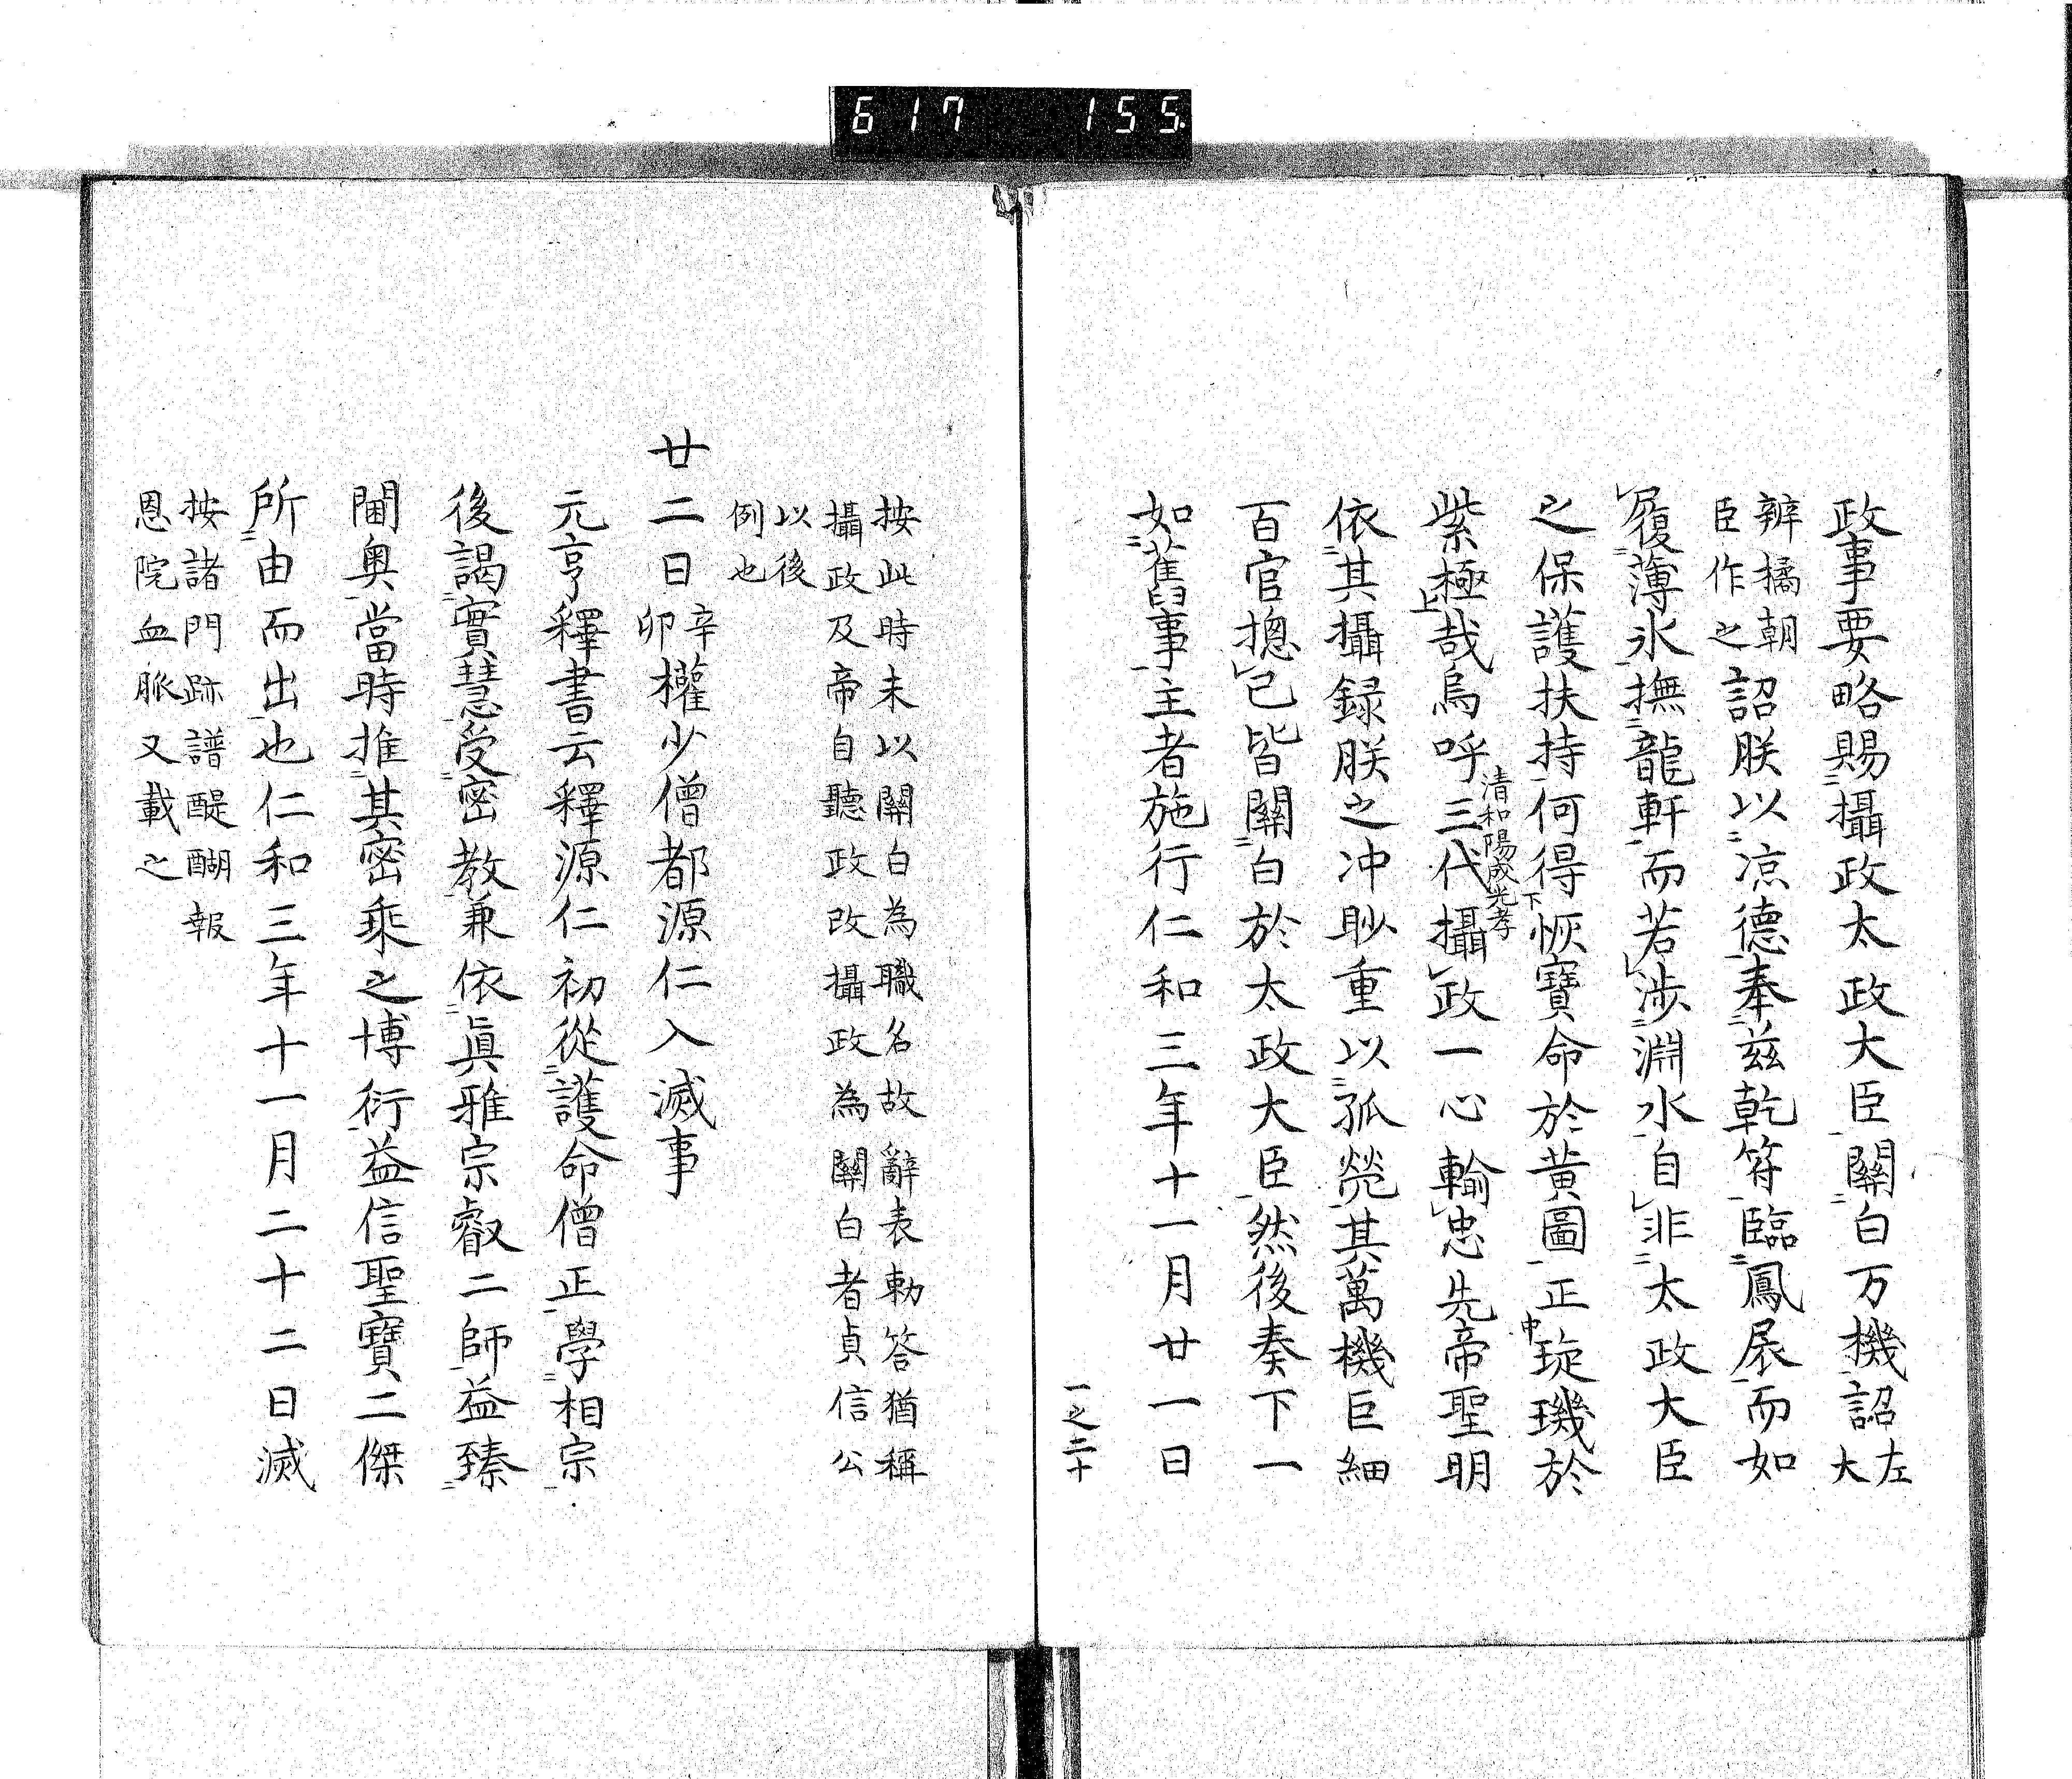 617 155
政事要略賜攝政太政大臣關白万機詔左大
辨橘朝臣作之詔朕以凉德奉茲乾符臨鳳扆而如
履薄氷撫龍軒而若渉淵水自非太政大臣
之保護扶持何得恢寶命於黄圖正琁璣於
紫極哉烏呼三代攝政一心輸忠先帝聖明
清和陽成光孝
依其攝録朕之冲眇重以孤煢其萬機巨細
百官揔已皆關白於太政大臣然後奏下一
如舊事主者施行仁和三年十一月廿一日
一之二十
按此時未以關白為職名故辭表勅答猶稱
攝政及帝自聽政改攝政為關白者貞信公
以後
例也
廿二日辛卯權少僧都源仁入滅事
元亨釋書云釋源仁初從護命僧正學相宗
後謁實慧受密教兼依眞雅宗叡二師益臻
閫奥當時推其密乘之博衍益信聖寶二傑
所由而出也仁和三年十一月二十二日滅
按諸門跡譜醍醐報
恩院血脈又載之